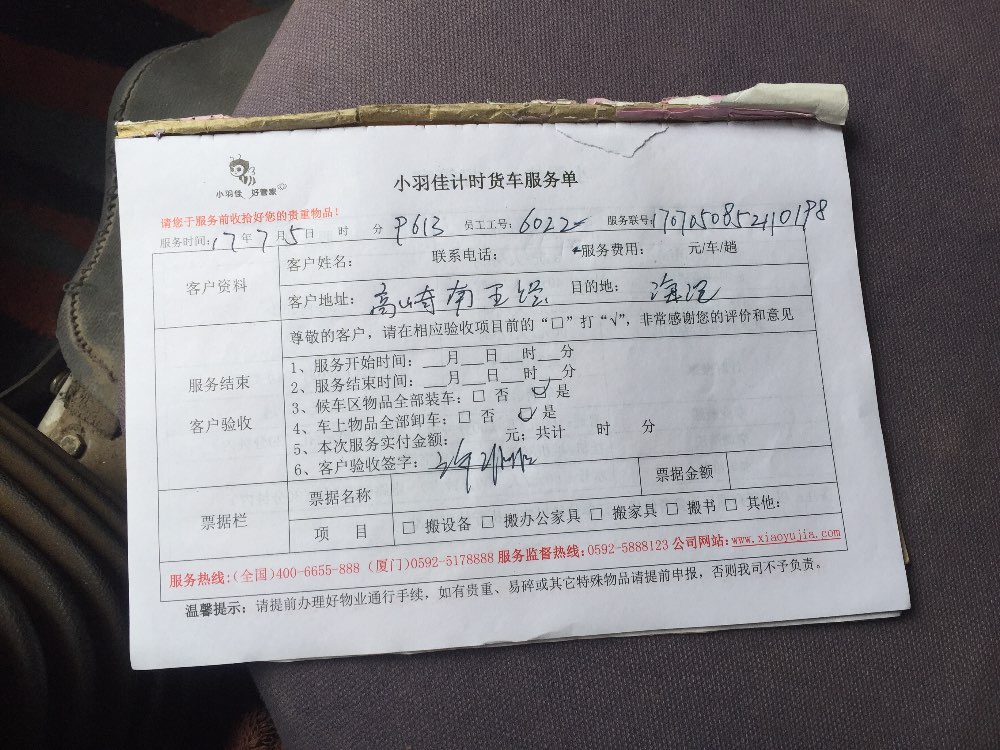 小羽佳 好管家
小羽佳计时货车服务单
请您于服务前收拾好您的贵重物品！
服务时间：17年7月5日 时 分 P613 员工工号：6022 服务联号：
客户资料
客户姓名： 联系电话： 服务费用： 元/车/趟
客户地址：高崎南 目的地：海沧
服务结束
客户验收
尊敬的客户，请在相应验收项目前的“□”打“√”，非常感谢您的评价和意见
1、服务开始时间：___月___日___时___分
2、服务结束时间：___月___日___时___分
3、候车区物品全部装车：□ 否 ☑ 是
4、车上物品全部卸车：□ 否 ☑ 是
5、本次服务实付金额： 元；共计 时 分
6、客户验收签字：
票据栏
票据名称 票据金额
项 目 □ 搬设备 □ 搬办公家具 □ 搬家具 □ 搬书 □ 其他：
服务热线：(全国)400-6655-888 (厦门)0592-5178888 服务监督热线：0592-5888123 公司网站：www.xiaoyujia.com
温馨提示：请提前办理好物业通行手续，如有贵重、易碎或其它特殊物品请提前申报，否则我司不予负责。